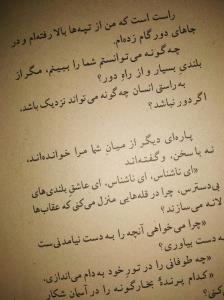 راست است که من از تپه‌ها بالا رفته‌ام و در
جاهای دور گام زده‌ام.
چه‌گونه می‌توانستم شما را ببینم، مگر از
بلندیِ بسیار و از راهِ دور؟
به راستی انسان چه‌گونه می‌تواند نزدیک باشد،
اگر دور نباشد؟
پاره‌ای دیگر از میانِ شما مرا خوانده‌اند،
نه با سخن، و گفته‌اند
«ای ناشناس، ای ناشناس، ای عاشقِ بلندی‌های
بی‌دسترس، چرا در قله‌هایی منزل می‌کنی که عقاب‌ها
لانه می‌سازند؟
«چرا می‌خواهی آنچه را به دست نیامدنی‌ست
به دست بیاوری؟
«چه طوفانی را در تورِ خود به دام می‌اندازی،
«کدام پرندهٔ بخارگونه را در آسمان شکار